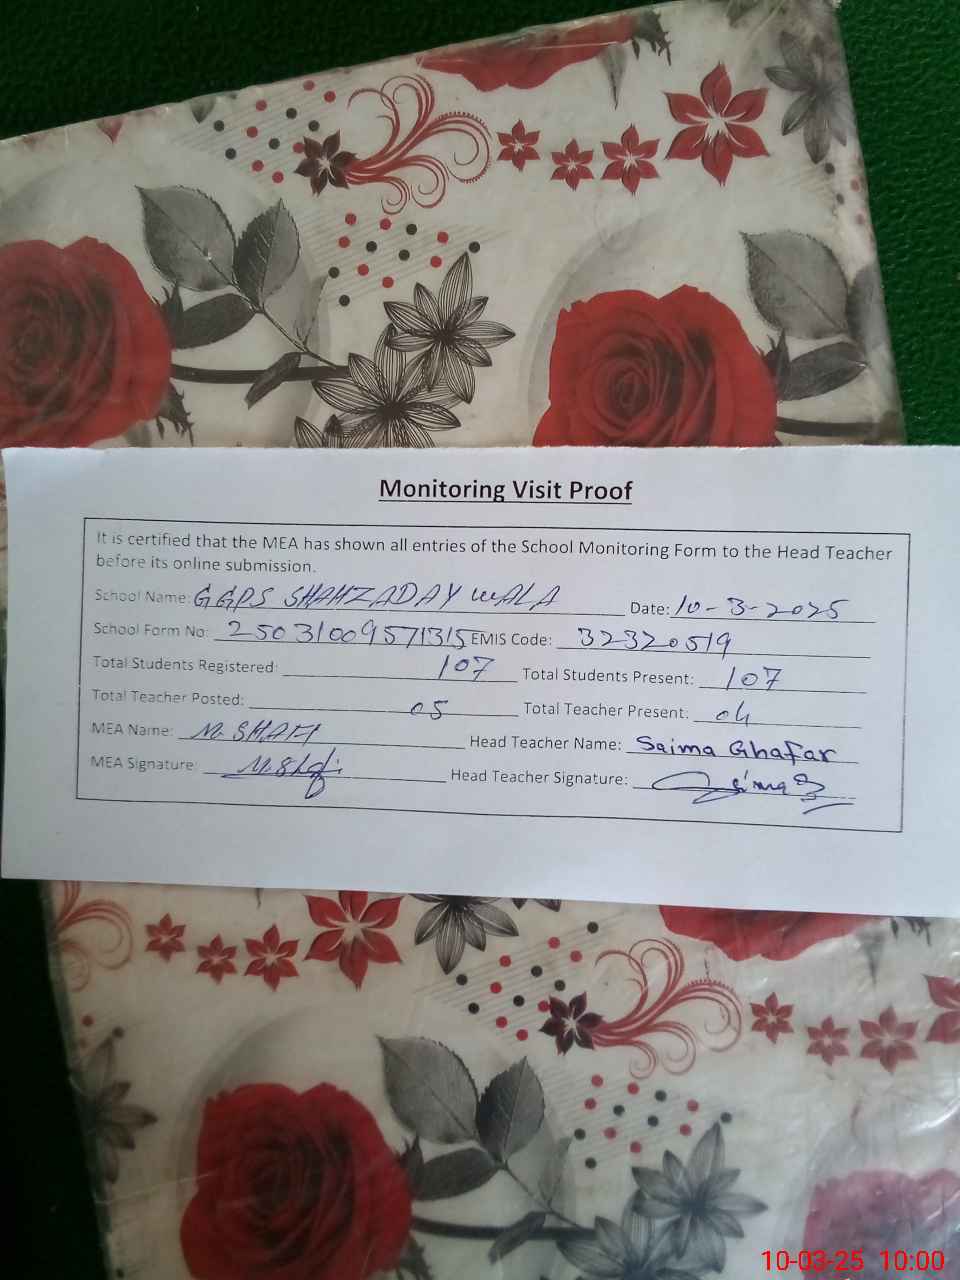 Monitoring Visit Proof
It is certified that the MEA has shown all entries of the School Monitoring Form to the Head Teacher
before its online submission.
School Name: GGPS SHAHZADAY WALA Date: 10-3-2025
School Form No: 25031009571315 EMIS Code: 32320519
Total Students Registered: 107 Total Students Present: 107
Total Teacher Posted: 05 Total Teacher Present: 04
MEA Name: M. SHAFI Head Teacher Name: Saima Ghafar
MEA Signature: M. Shafi Head Teacher Signature:
10-03-25 10:00